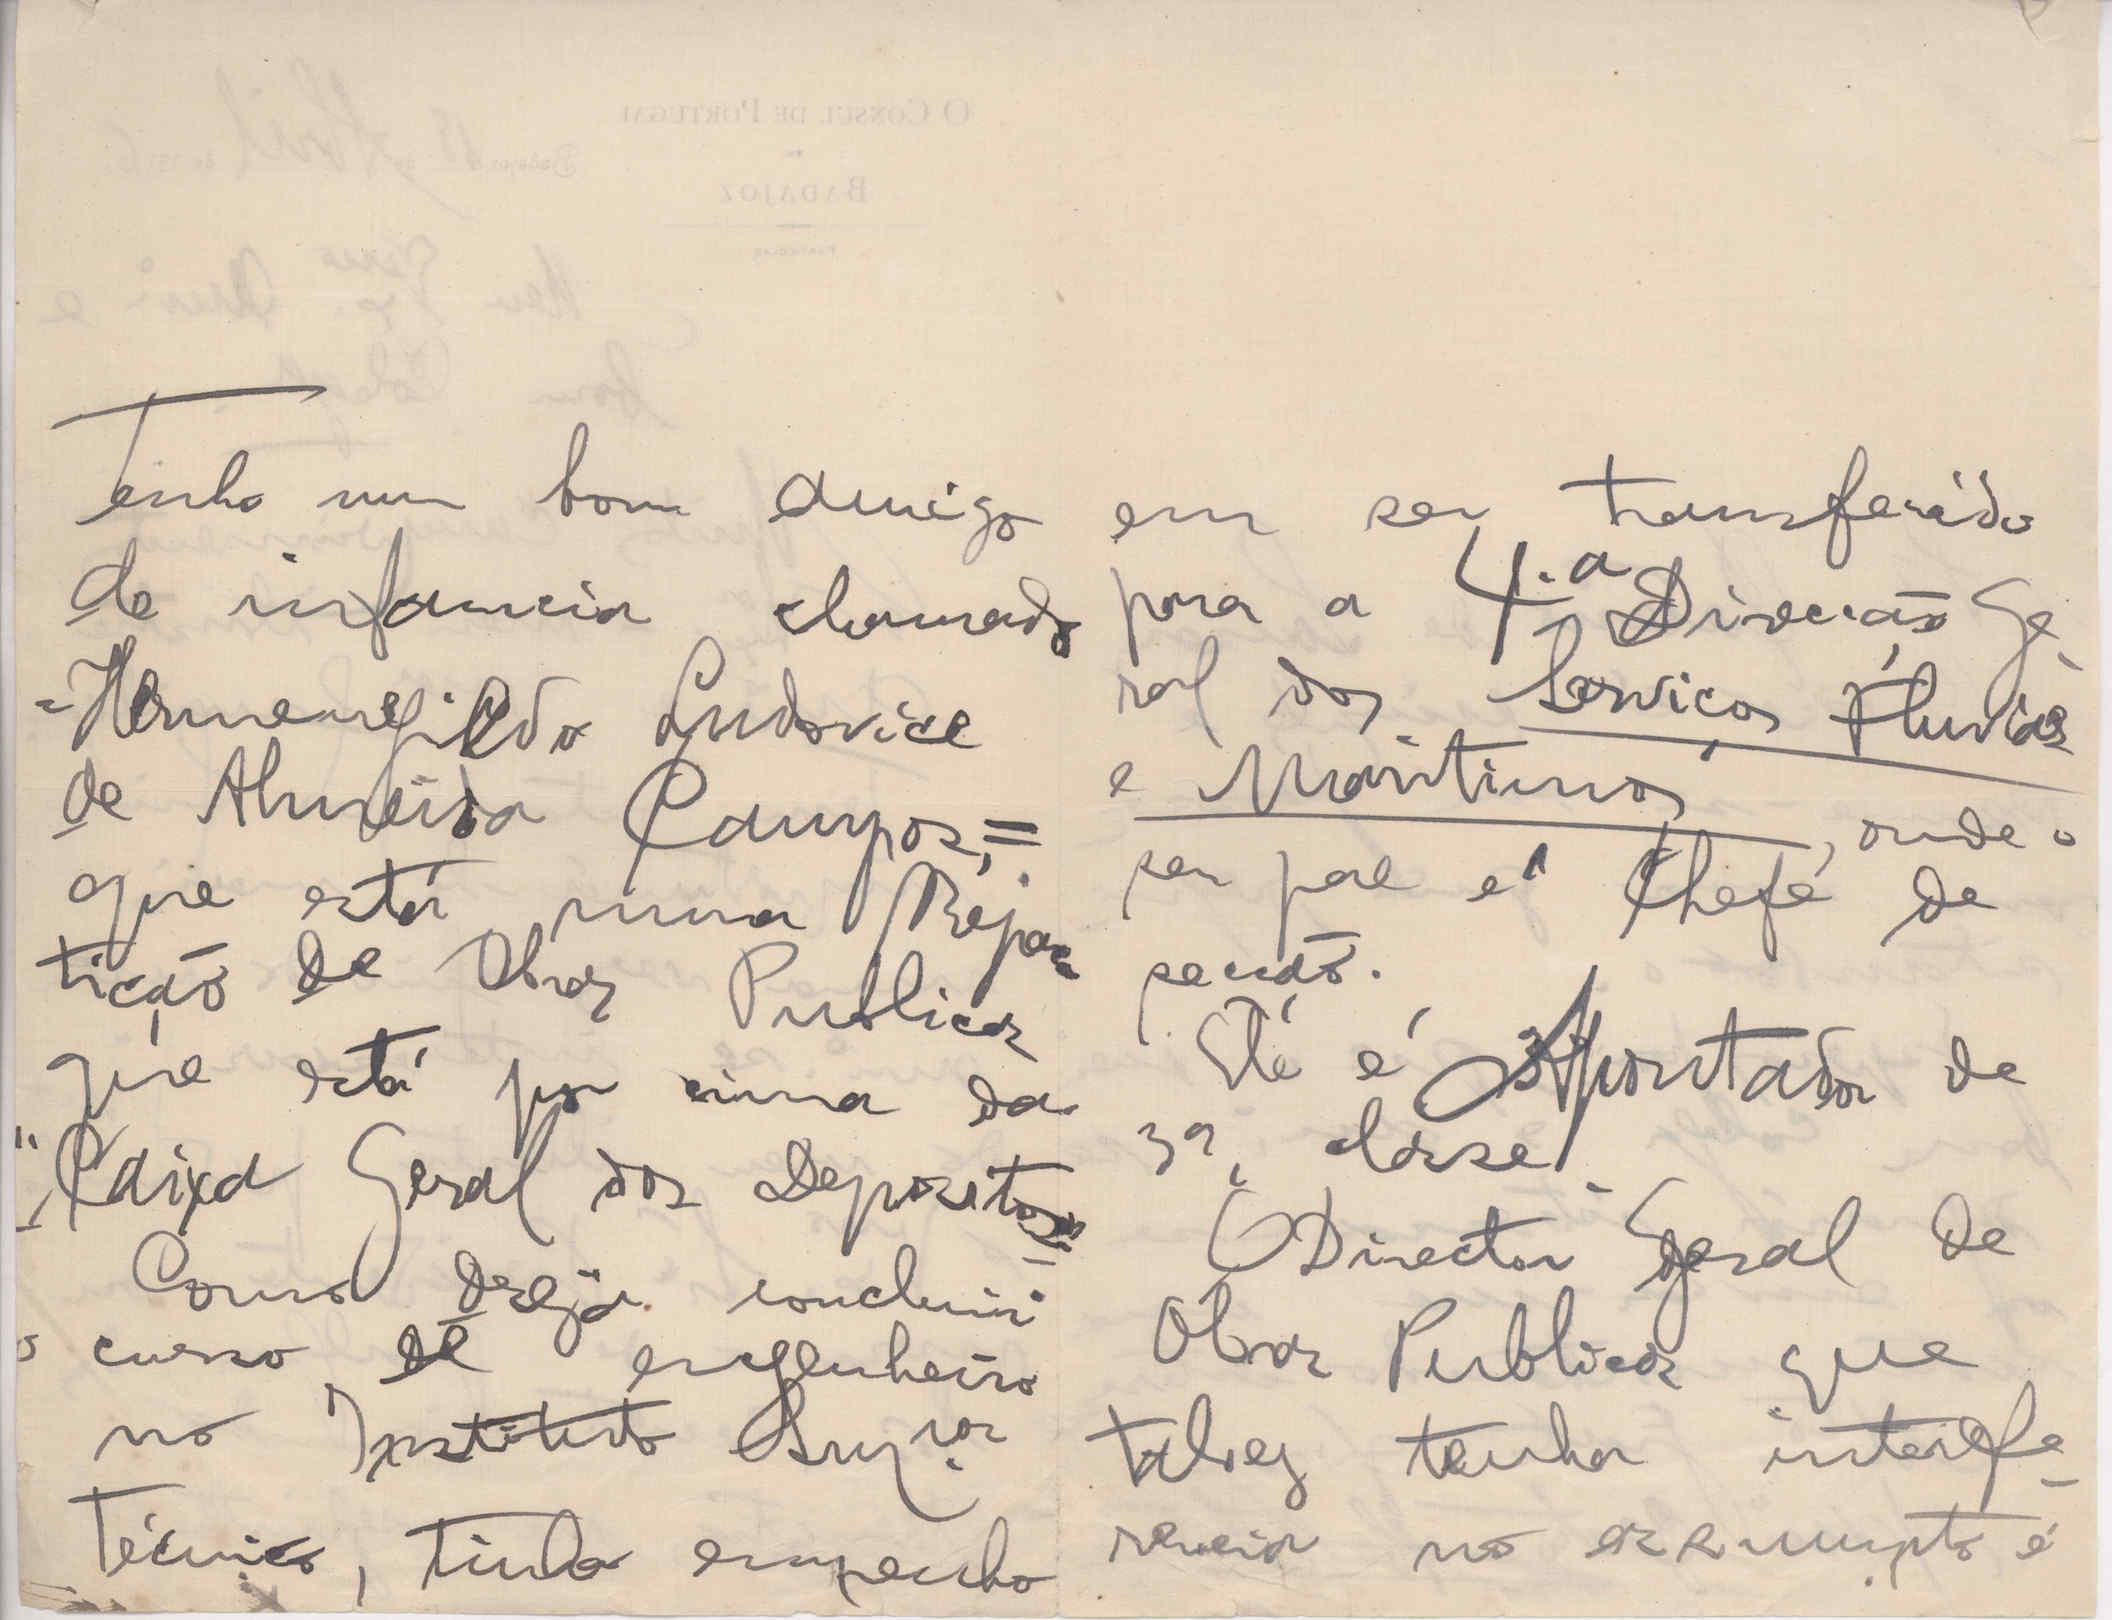 Tenho um bom amigo
de infancia chamado
=Hermenegildo Ludovice
de Almeida Campos,=
que está numa Repar-
tição de Obras Publicas
que está por cima da
"Caixa Geral dos Depositos".
Como deseja concluir
o curso de engenheiro
no Instituto Sup.or
Técnico, tinha empenho
em ser transferido
para a 4.a Direcção Ge-
ral dos Serviços Fluviaes
e Maritimos, onde o
seu pae é Chefe de
secção.
Ele é Apontador de
3a. classe.
O Director Geral de
Obras Publicas que
talvez tenha interefe-
rencia no assumpto é
O CONSUL DE PORTUGAL
BADAJOZ